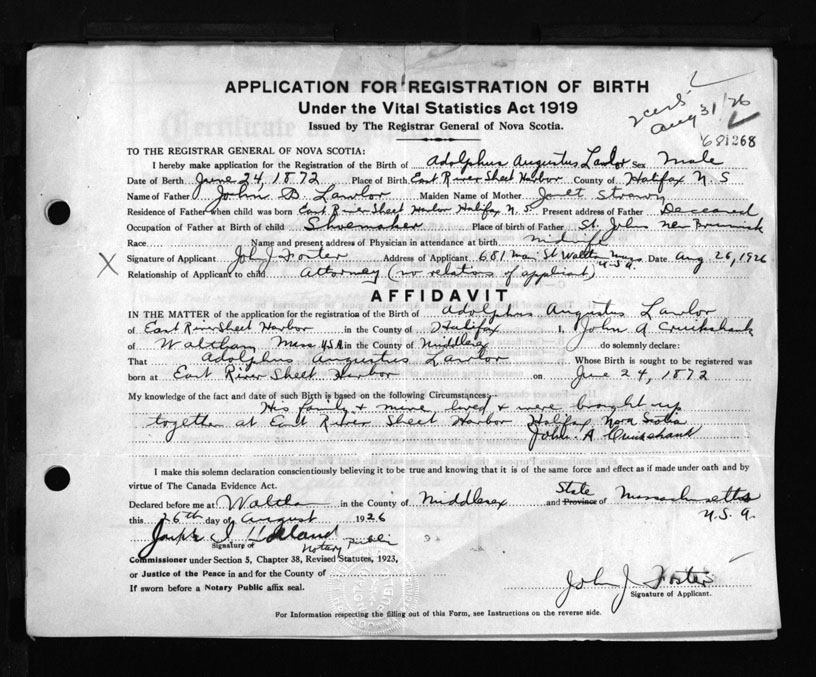 APPLICATION FOR REGISTRATION OF BIRTH
Under the Vital Statistics Act 1919
Issued by The Registrar General of Nova Scotia.
Aug 31/26
681268
TO THE REGISTRAR GENERAL OF NOVA SCOTIA:
I hereby make application for the Registration of the Birth of Adolphus Augustus Lawlor Sex Male
Date of Birth June 24, 1872 Place of Birth East River Sheet Harbor County of Halifax N. S
Name of Father John B. Lawlor Maiden Name of Mother
Residence of Father when child was born East River Sheet Harbor Halifax N. S. Present address of Father Deceased
Occupation of Father at Birth of child Shoemaker Place of birth of Father St. Johns New Brunswick
Race Name and present address of Physician in attendance at birth midwife
X Signature of Applicant John J Foster Address of Applicant 681 Main St Waltham Mass U.S.A. Date Aug 26, 1926
Relationship of Applicant to child attorney (no relations of applicant)
AFFIDAVIT
IN THE MATTER of the application for the registration of the Birth of Adolphus Augustus Lawlor
of East River Sheet Harbor in the County of Halifax I, John A Cruikshank
of Waltham Mass USA in the County of Middlesex do solemnly declare:
That Adolphus Augustus Lawlor Whose Birth is sought to be registered was
born at East River Sheet Harbor on June 24, 1872
My knowledge of the fact and date of such Birth is based on the following Circumstances:
His family & mine lived & were brought up
together at East River Sheet Harbor Halifax Nova Scotia
John A Cruikshank
I make this solemn declaration conscientiously believing it to be true and knowing that it is of the same force and effect as if made under oath and by
virtue of The Canada Evidence Act.
Declared before me at Waltham in the County of Middlesex and Province of State Massachusetts
this 26th day of August 1926 U.S.A.
Notary Public
Signature of
Commissioner under Section 5, Chapter 38, Revised Statutes, 1923,
or Justice of the Peace in and for the County of
If sworn before a Notary Public affix seal.
John J Foster
Signature of Applicant.
For Information respecting the filling out of this Form, see Instructions on the reverse side.